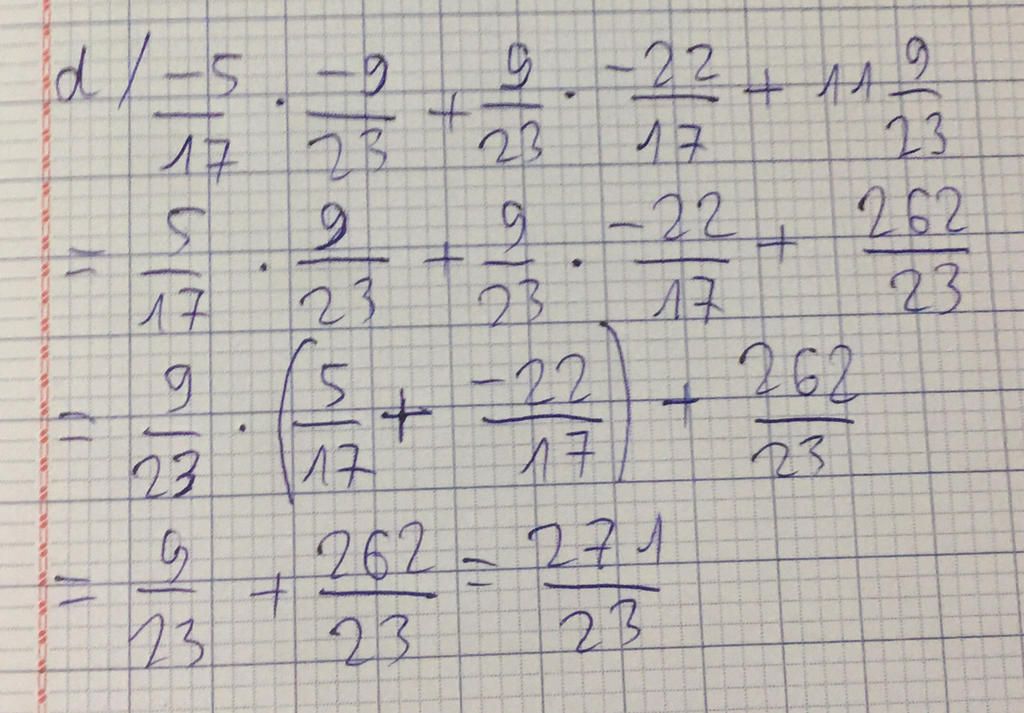 d/ \frac{-5}{17} . \frac{-9}{23} + \frac{9}{23} . \frac{-22}{17} + 11\frac{9}{23}
= \frac{5}{17} . \frac{9}{23} + \frac{9}{23} . \frac{-22}{17} + \frac{262}{23}
= \frac{9}{23} . (\frac{5}{17} + \frac{-22}{17}) + \frac{262}{23}
= \frac{9}{23} + \frac{262}{23} = \frac{271}{23}